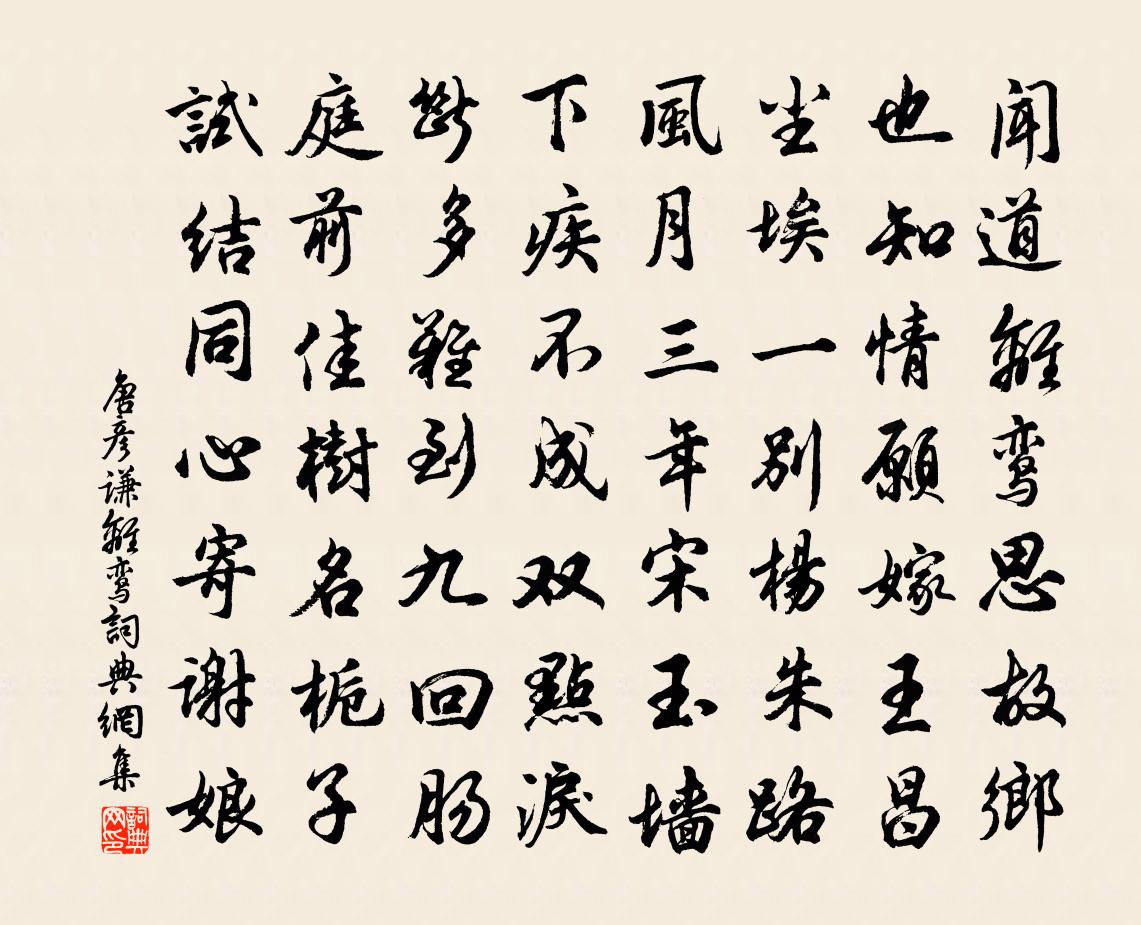 闻道離鸾思故鄉
也知情願嫁王昌
尘埃一别楊朱路
風月三年宋玉墙
下疾不成双點淚
斷多難到九回肠
庭前佳樹名栀子
試结同心寄谢娘
唐彦谦離鸾詞典網集
詞典网印